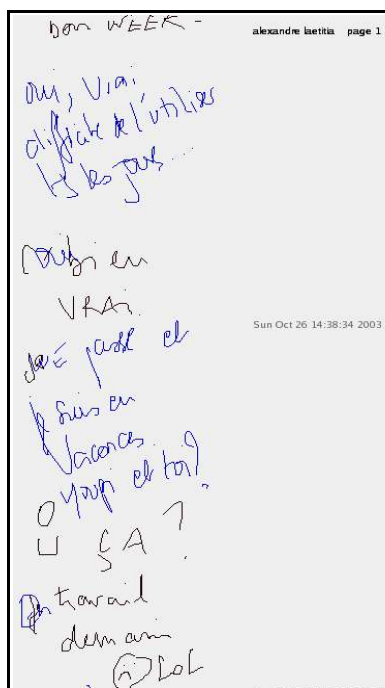 bon WEEK -
alexandre laetitia page 1
oui, vrai
difficile de l'utiliser
ts les jours...
bien
VRAI.
Sun Oct 26 14:38:34 2003
passé et
je suis en
vacances.
youpi et toi?
OU ÇA ?
travail
demain
LOL